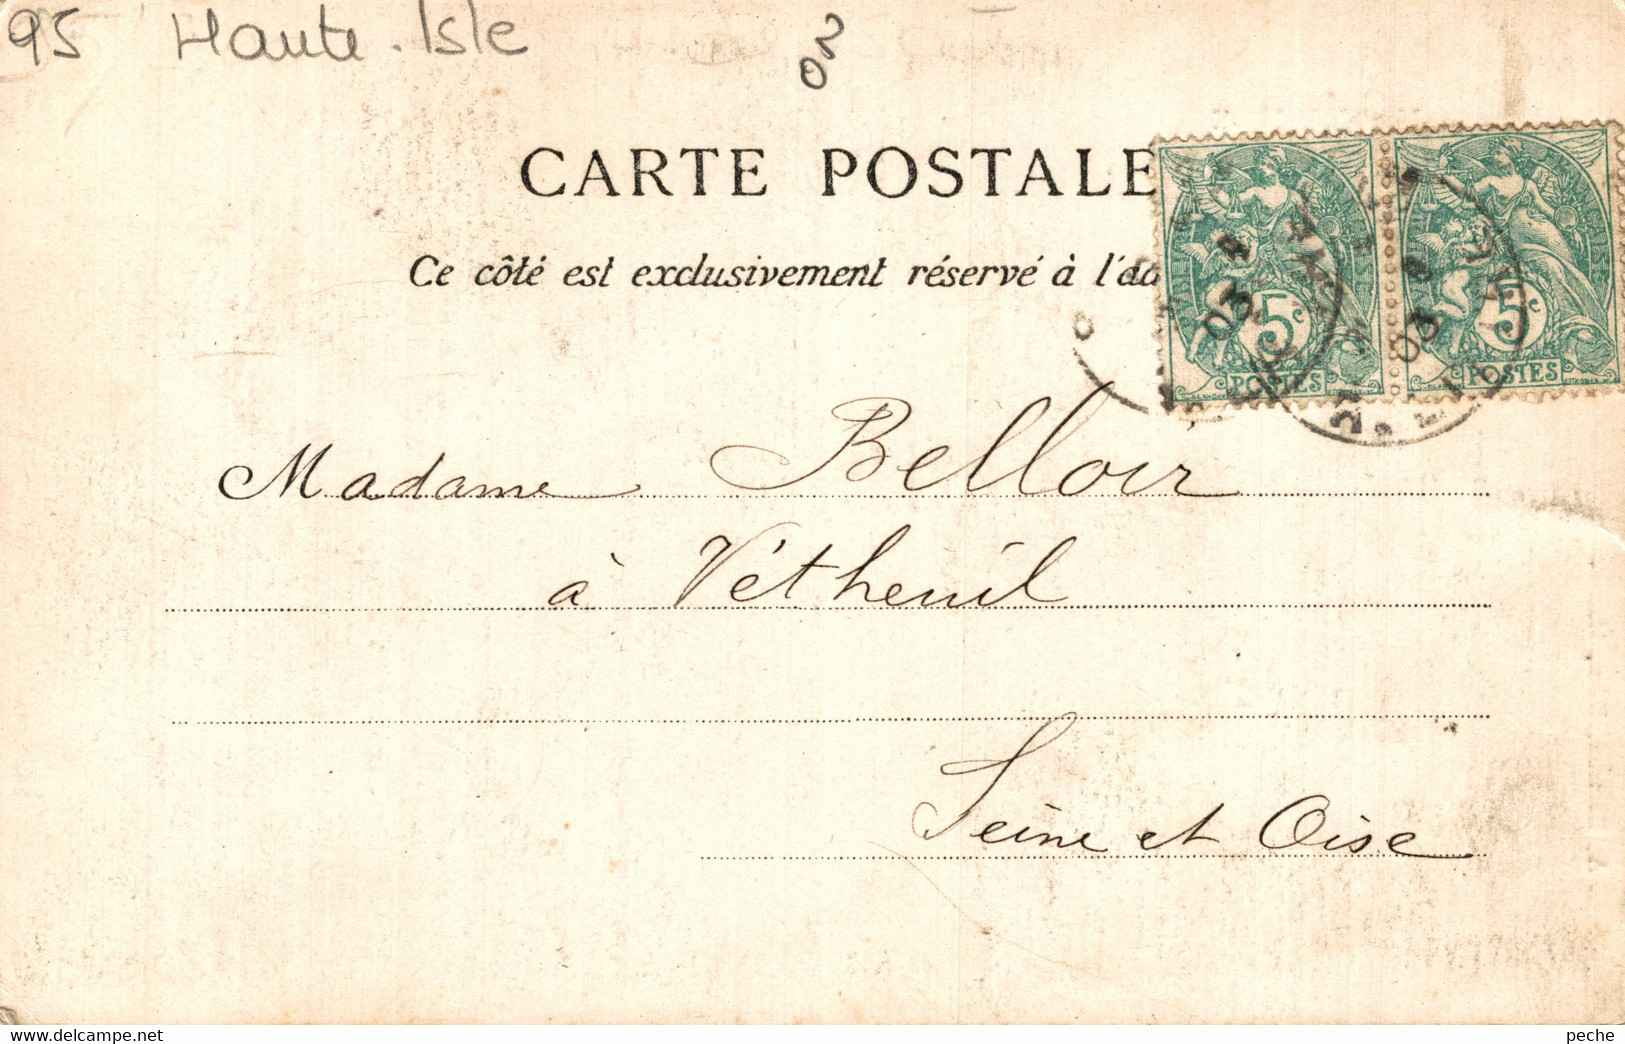 95 Haute-Isle
02
CARTE POSTALE
Ce côté est exclusivement réservé à l'ad
5c 5c
POSTES POSTES
03 03
Madame Belloir
à Vétheuil
Seine et Oise
www.delcampe.net
peche